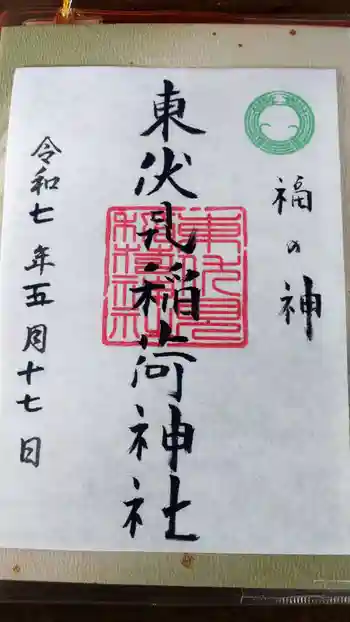 福の神
東伏見稲荷神社
令和七年五月十七日